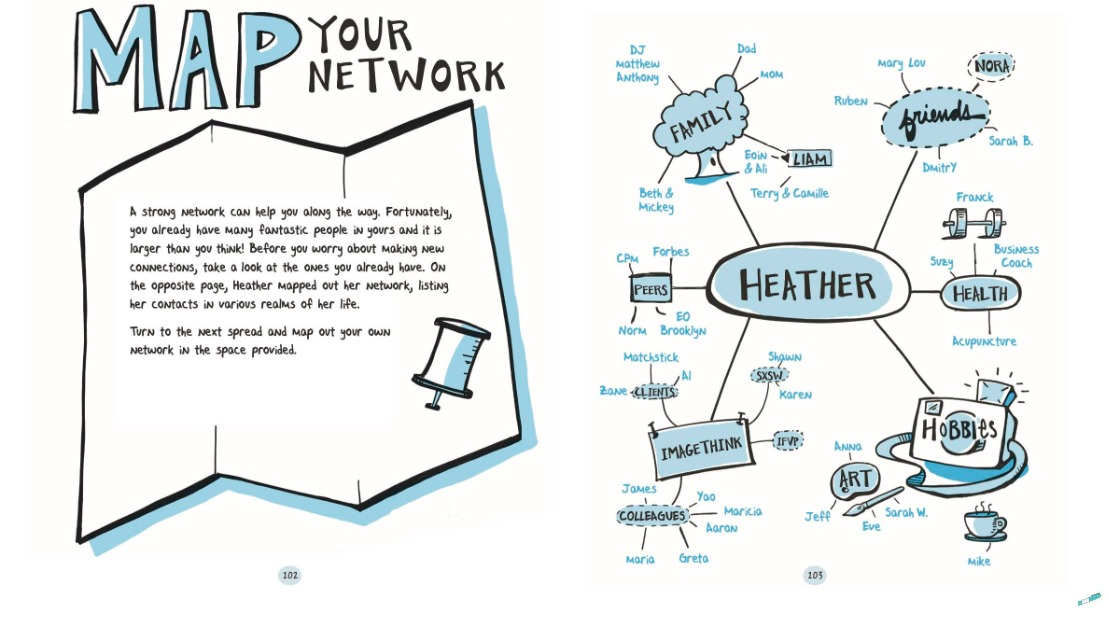 MAP YOUR
NETWORK
A strong network can help you along the way. Fortunately,
you already have many fantastic people in yours and it is
larger than you think! Before you worry about making new
connections, take a look at the ones you already have. On
the opposite page, Heather mapped out her network, listing
her contacts in various realms of her life.
Turn to the next spread and map out your own
network in the space provided.
102
DJ
Matthew
Anthony
Dad
Mom
FAMILY
Eoin
& Ali
LIAM
Beth &
Mickey
Terry & Camille
Mary Lou
NORA
Ruben
friends
Sarah B.
Dmitry
Franck
Suzy
Business
Coach
HEALTH
Acupuncture
HEATHER
CPM
Forbes
PEERS
Norm
EO
Brooklyn
Matchstick
Al
Zane
CLIENTS
Shawn
SXSW
Karen
IMAGETHINK
IFVP
James
Yao
COLLEAGUES
Maricia
Aaron
Maria
Greta
HOBBIES
Anna
ART
Jeff
Eve
Sarah W.
Mike
103